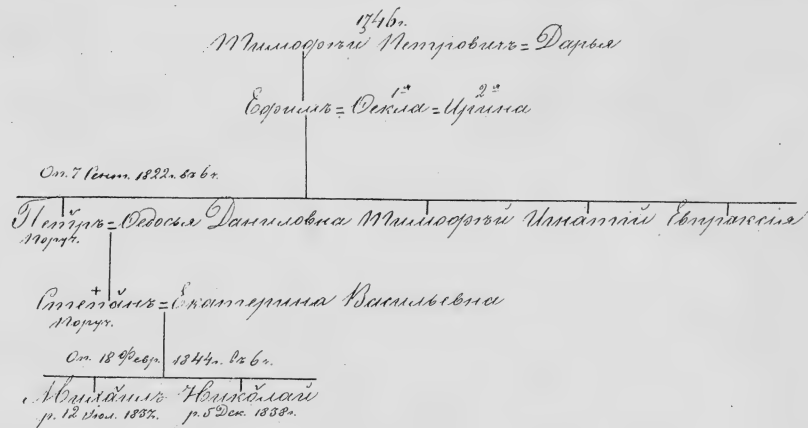 1746г.
Тимофѣй Петровичъ = Дарья
1ᵃ 2ᵃ
Ефимъ = Ѳекла = Ирина
Оп. 7 Сент. 1822г. въ 6ч.
Петръ = Ѳедосья Даниловна Тимофѣй Игнатій Евпраксія
Поруч.
+
Степанъ = Екатерина Васильевна
Поруч.
Оп. 18 Февр. 1844г. въ 6ч.
Михаилъ Николай
р. 12 Іюл. 1837г. р. 5 Дек. 1838г.